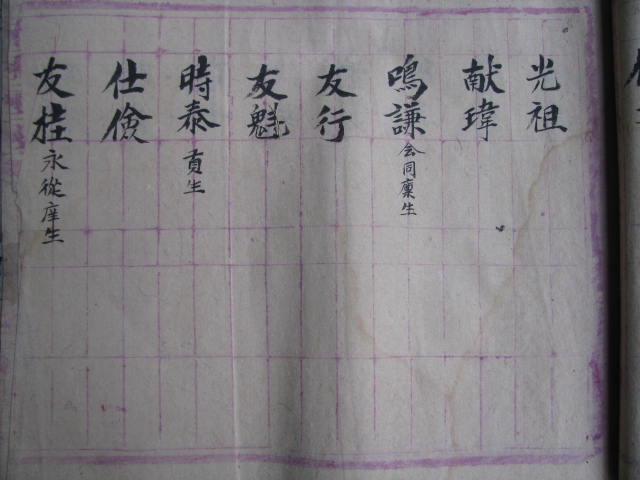 光祖
献瑋
鳴謙会同廪生
友行
友魁
時泰貢生
仕儉
友桂永從庠生